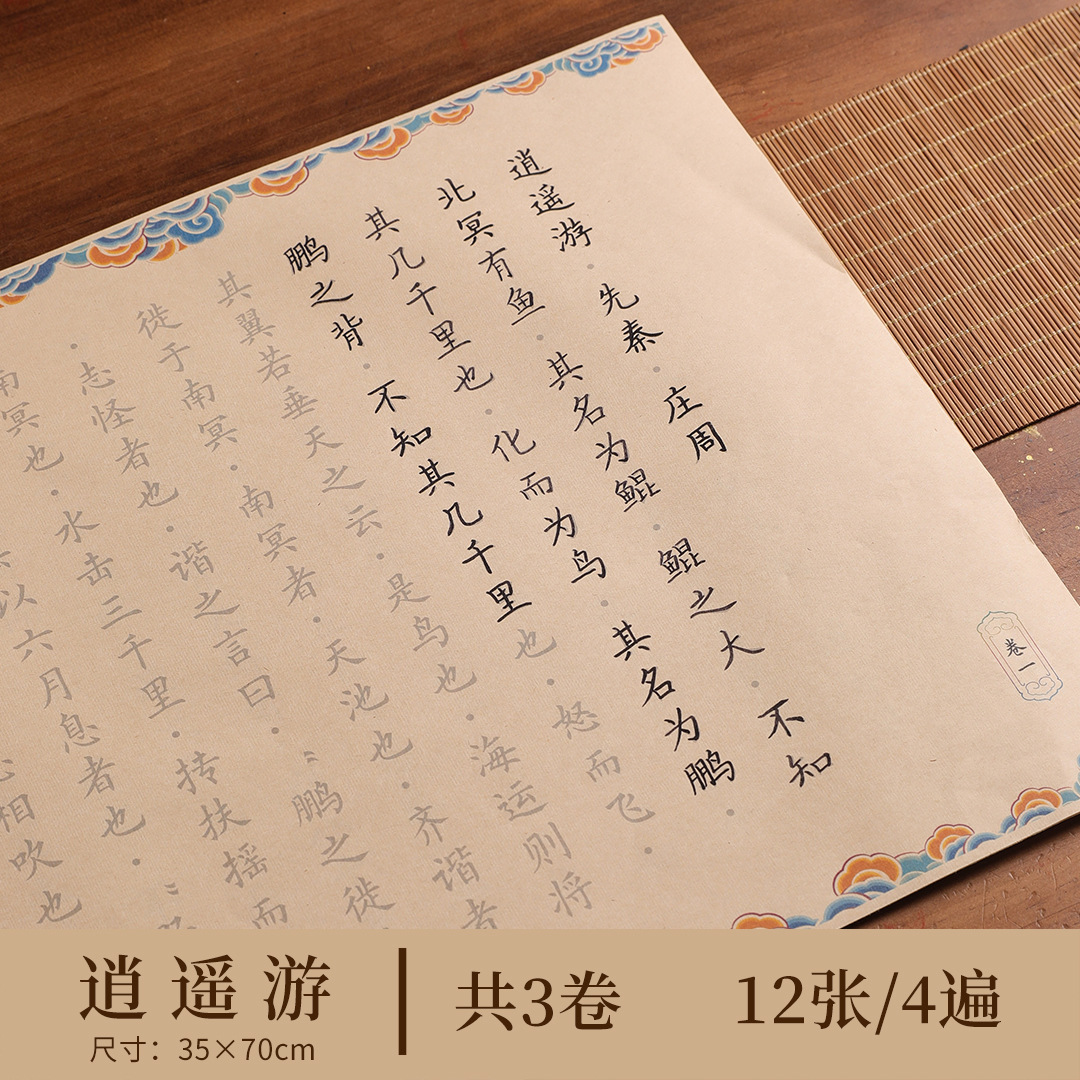 逍遥游·先秦·庄周
北冥有鱼·其名为鲲·鲲之大·不知
其几千里也·化而为鸟·其名为鹏·
鹏之背·不知其几千里也·怒而飞·
其翼若垂天之云·是鸟也·海运则将
徙于南冥·南冥者·天池也·齐谐者
·志怪者也·谐之言曰·“鹏之徙
南冥也·水击三千里·抟扶摇而
以六月息者也·“
相吹也
卷一
逍遥游
尺寸：35×70cm
共3卷
12张/4遍